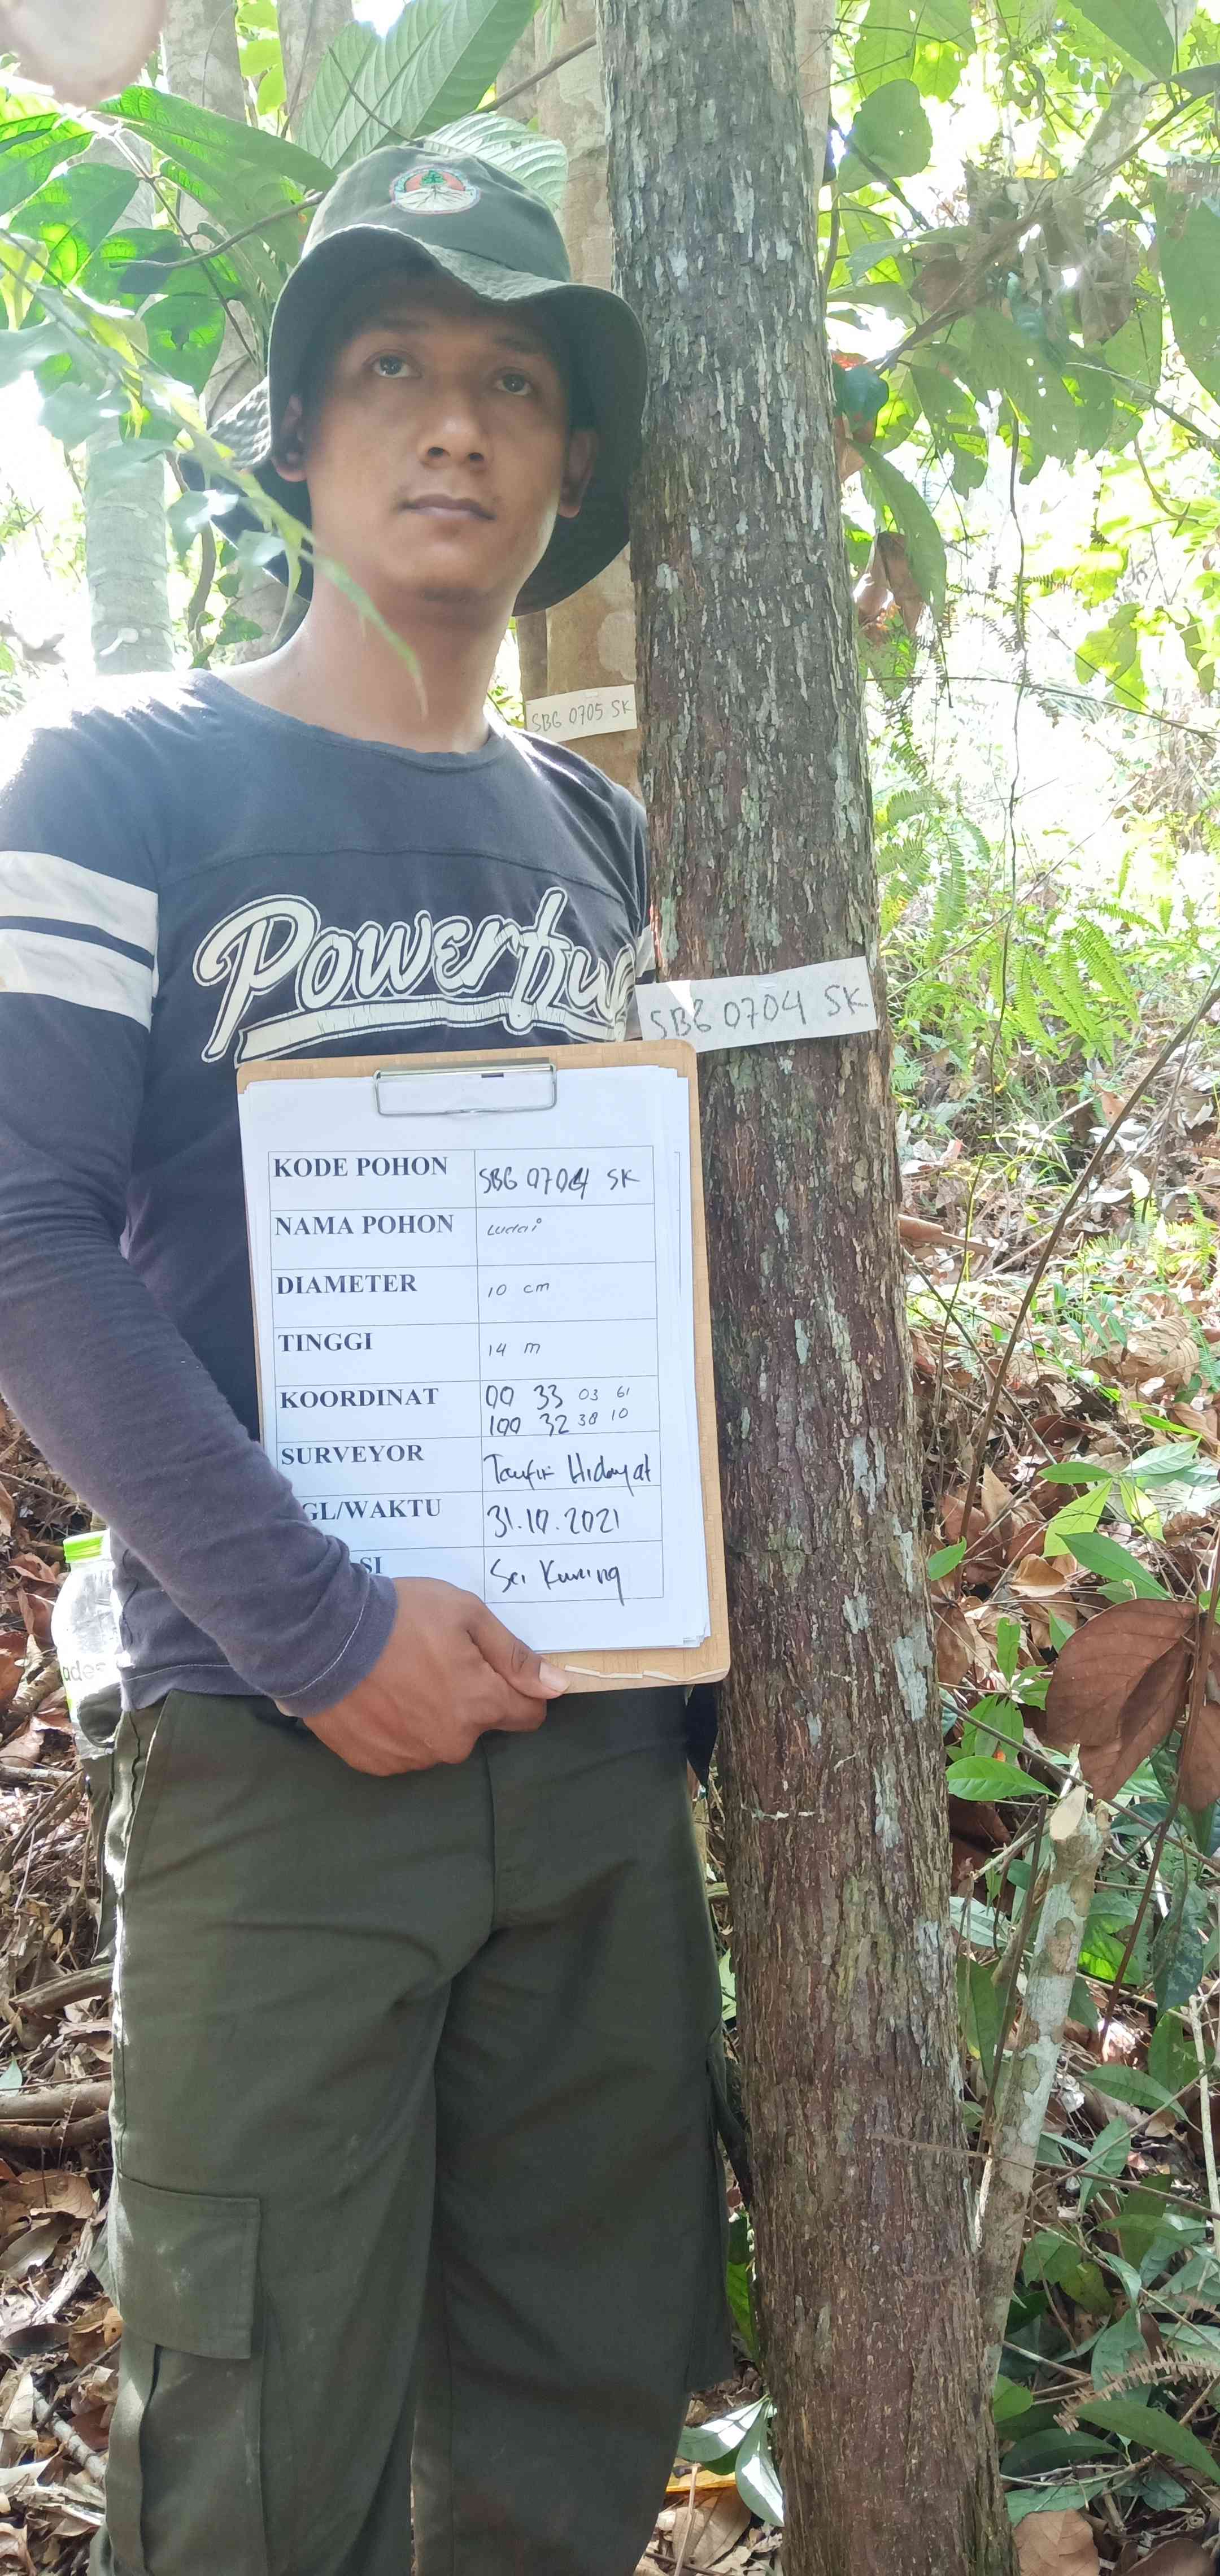 SBG 0705 SK
Powerpuf
SBG 0704 SK
KODE POHON SBG 0704 SK
NAMA POHON Ludai
DIAMETER 10 cm
TINGGI 14 m
KOORDINAT 00 33 03 61
100 32 38 10
SURVEYOR Taufik Hidayat
GL/WAKTU 31.10.2021
SI Sei Kuning
ades